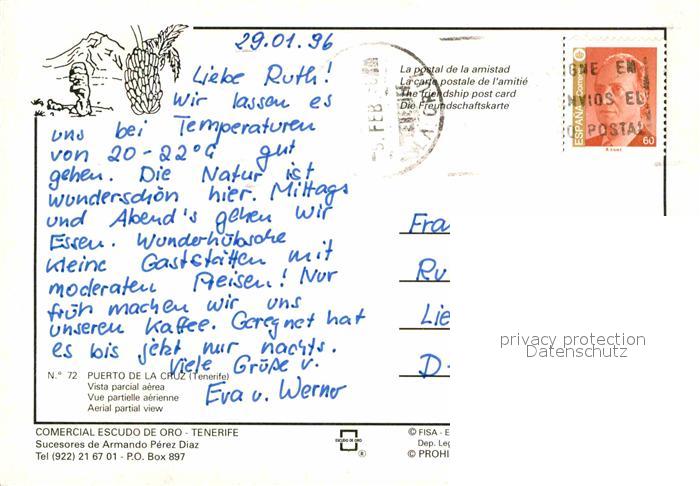 29.01.96
Liebe Ruth!
Wir lassen es
uns bei Temperaturen
von 20-22°C gut
gehen. Die Natur ist
wunderschön hier. Mittags
und Abend's gehen wir
Essen. Wunderhübsche
kleine Gaststätten mit
moderaten Preisen! Nur
früh machen wir uns
unseren Kaffee. Geregnet hat
es bis jetzt nur nachts.
Viele Grüße v.
Eva u. Werner
N.° 72 PUERTO DE LA CRUZ (Tenerife)
Vista parcial aérea
Vue partielle aérienne
Aerial partial view
COMERCIAL ESCUDO DE ORO - TENERIFE
Sucesores de Armando Pérez Diaz
Tel (922) 21 67 01 - P.O. Box 897
ESCUDO DE ORO
®
La postal de la amistad
La carte postale de l'amitié
The friendship post card
Die Freundschaftskarte
FEB
GNE EN
NVIOS EL
O POSTAL
ESPAÑA
Correos
60
Fra
Ru
Lie
D-
privacy protection
Datenschutz
© FISA - E
Dep. Leg
© PROHI